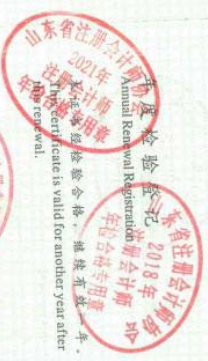 年度检验登记
Annual Renewal Registration
本证书经检验合格，继续有效一年。
This certificate is valid for another year after
this renewal.
山东省注册会计师协会
2021年
注册会计师
年检合格专用章
山东省注册会计师协会
2018年
注册会计师
年检合格专用章